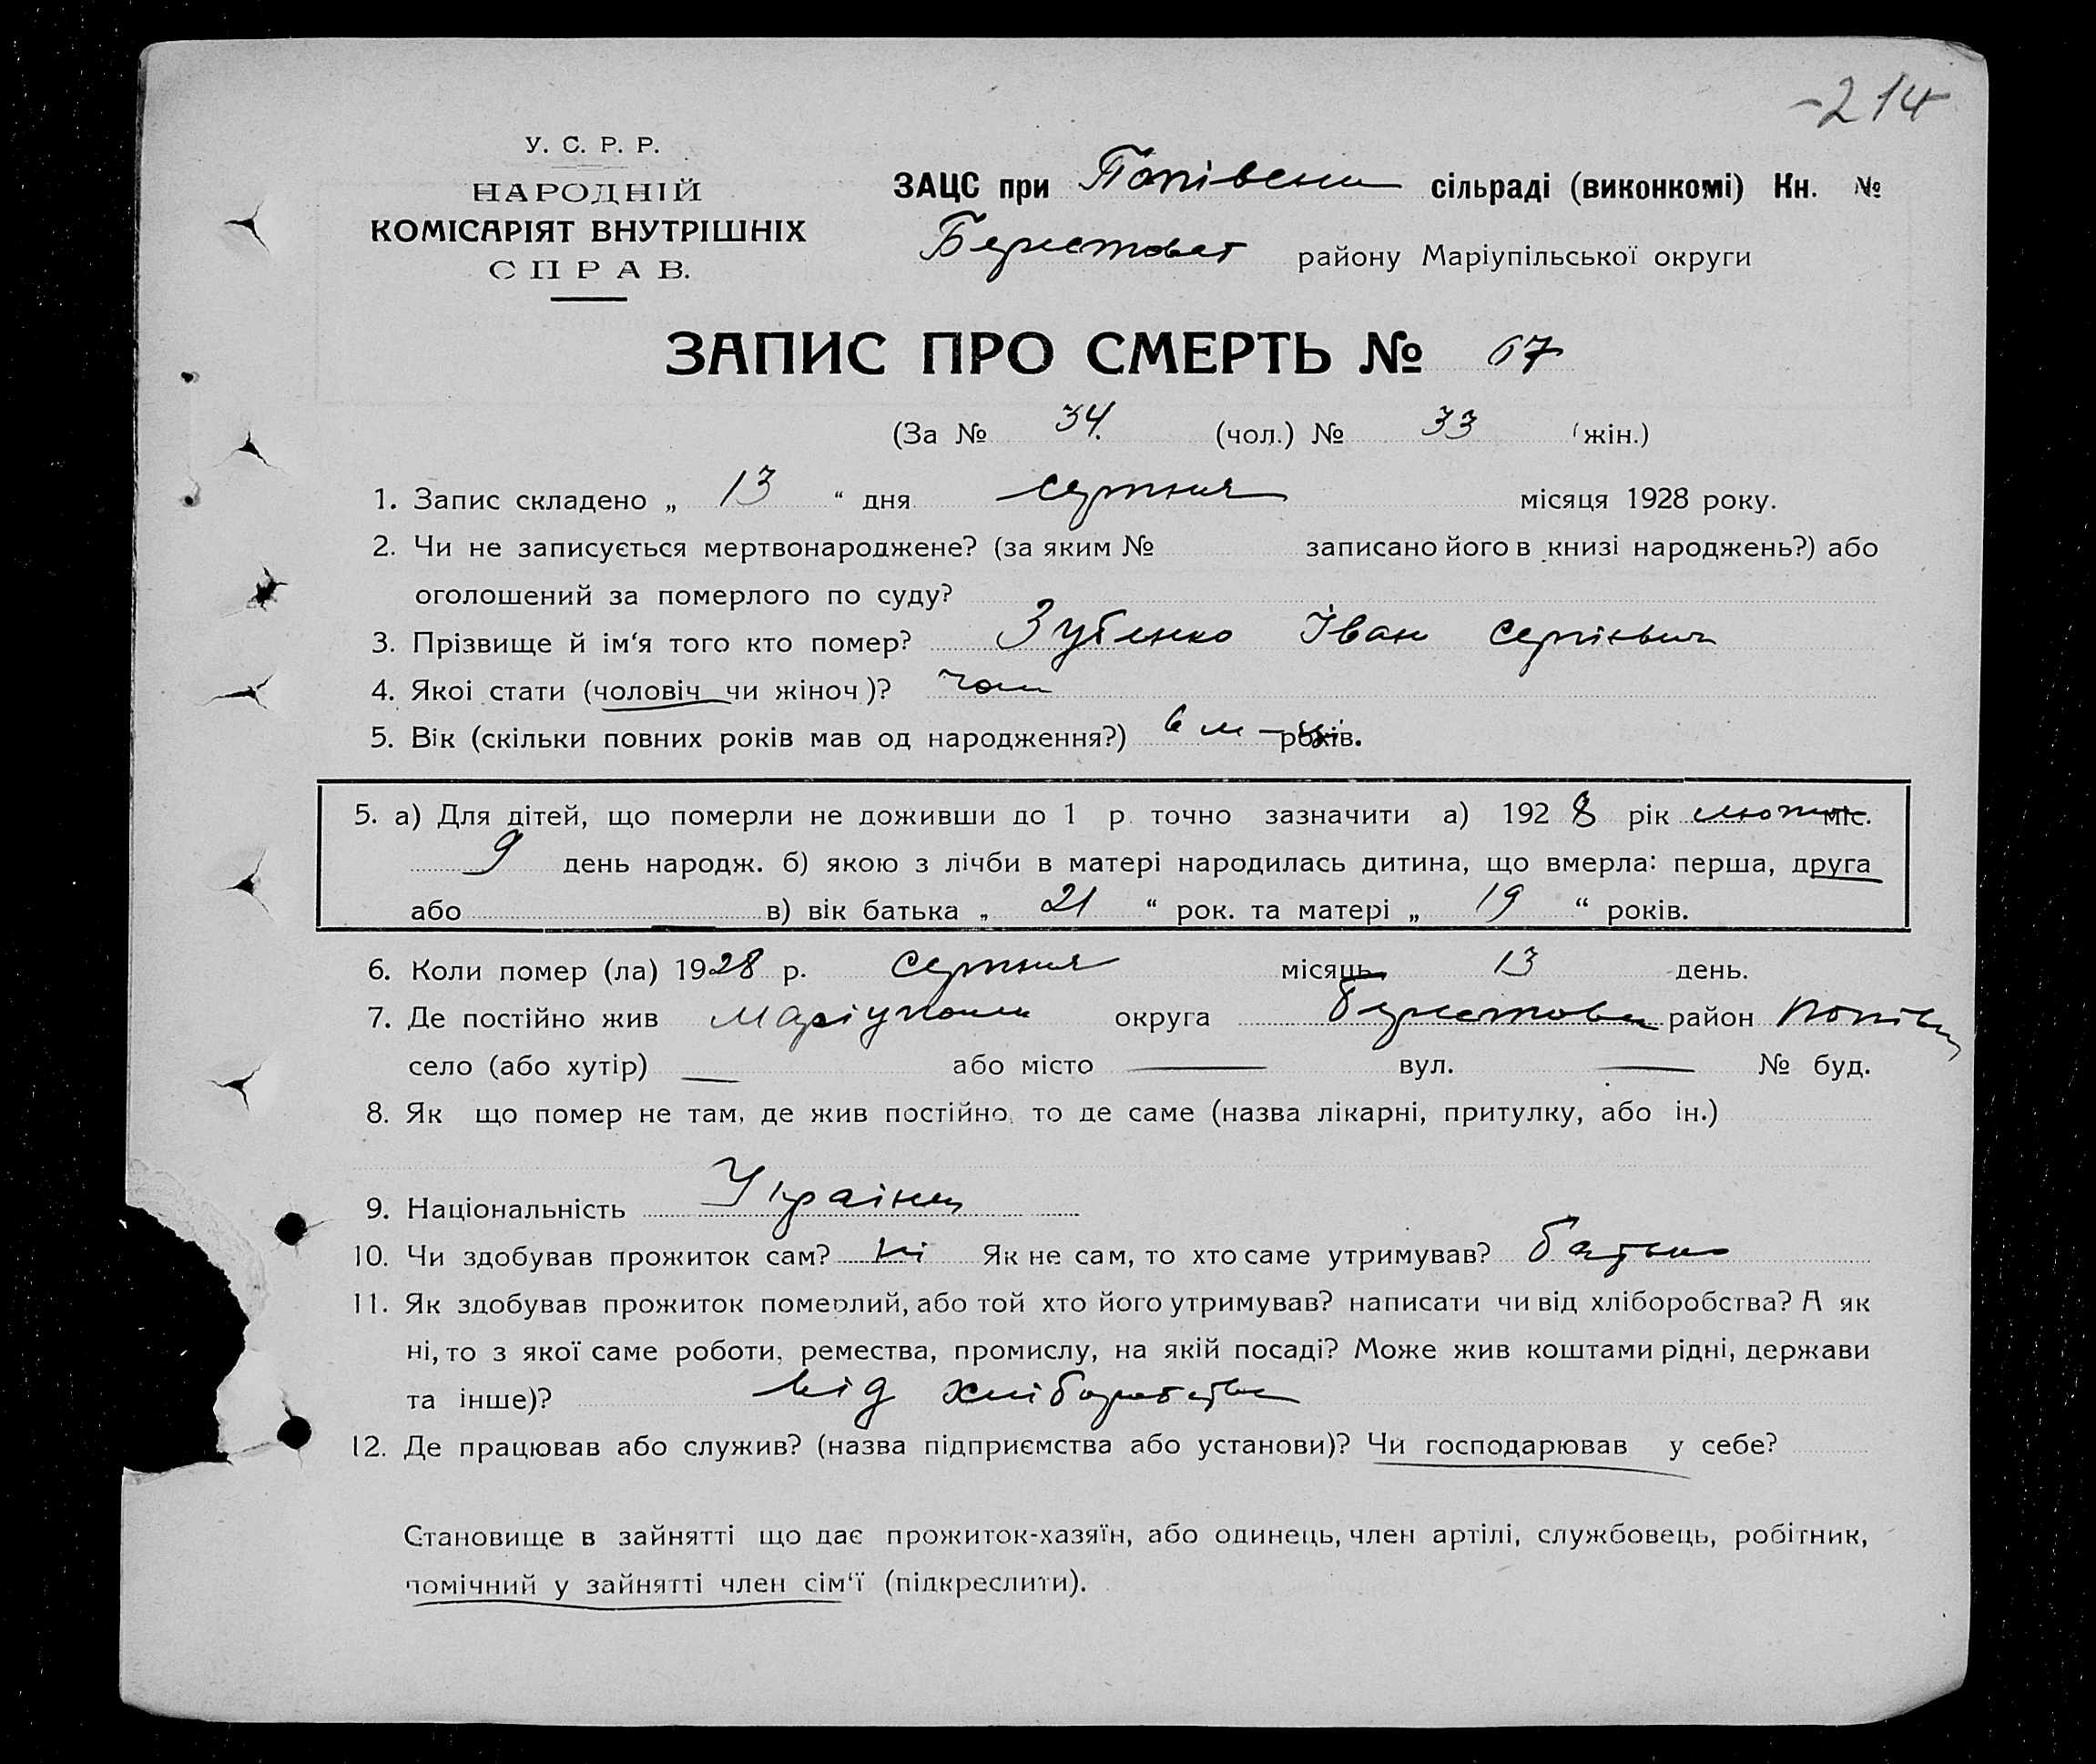 -214
У. С. Р. Р.
НАРОДНІЙ
КОМІСАРІЯТ ВНУТРІШНІХ
СПРАВ.
ЗАЦС при Попівськ сільраді (виконкомі) Кн. №
Берестоват району Маріупільської округи
ЗАПИС ПРО СМЕРТЬ № 67
(За № 34. (чол.) № 33 (жін.)
1. Запис складено „ 13 “ дня серпня місяця 1928 року.
2. Чи не записується мертвонароджене? (за яким № записано його в книзі народжень?) або
оголошений за померлого по суду?
3. Прізвище й ім‘я того кто помер? Зубенко Іван Сергієвич
4. Якоі стати (чоловіч чи жіноч)? чол
5. Вік (скільки повних років мав од народження?) 6 м – років.
5. а) Для дітей, що померли не доживши до 1 р. точно зазначити а) 1928 рік лютий міс.
9 день народж. б) якою з лічби в матері народилась дитина, що вмерла: перша, друга
або в) вік батька „ 21 “ рок. та матері „ 19 “ років.
6. Коли помер (ла) 1928 р. серпня місяць 13 день.
7. Де постійно жив Маріупільск округа Берестовск район Попівк
село (або хутір) — або місто — вул. — № буд.
8. Як що помер не там, де жив постійно, то де саме (назва лікарні, притулку, або ін.)
9. Національність Українец
10. Чи здобував прожиток сам? ні Як не сам, то хто саме утримував? батько
11. Як здобував прожиток померлий, або той хто його утримував? написати чи від хліборобства? А як
ні, то з якої саме роботи, ремества, промислу, на якій посаді? Може жив коштами рідні, держави
та інше)? від хліборобства
12. Де працював або служив? (назва підприємства або установи)? Чи господарював у себе?
Становище в зайнятті що дає прожиток-хазяїн, або одинець, член артілі, службовець, робітник,
помічний у зайнятті член сім‘ї (підкреслити).